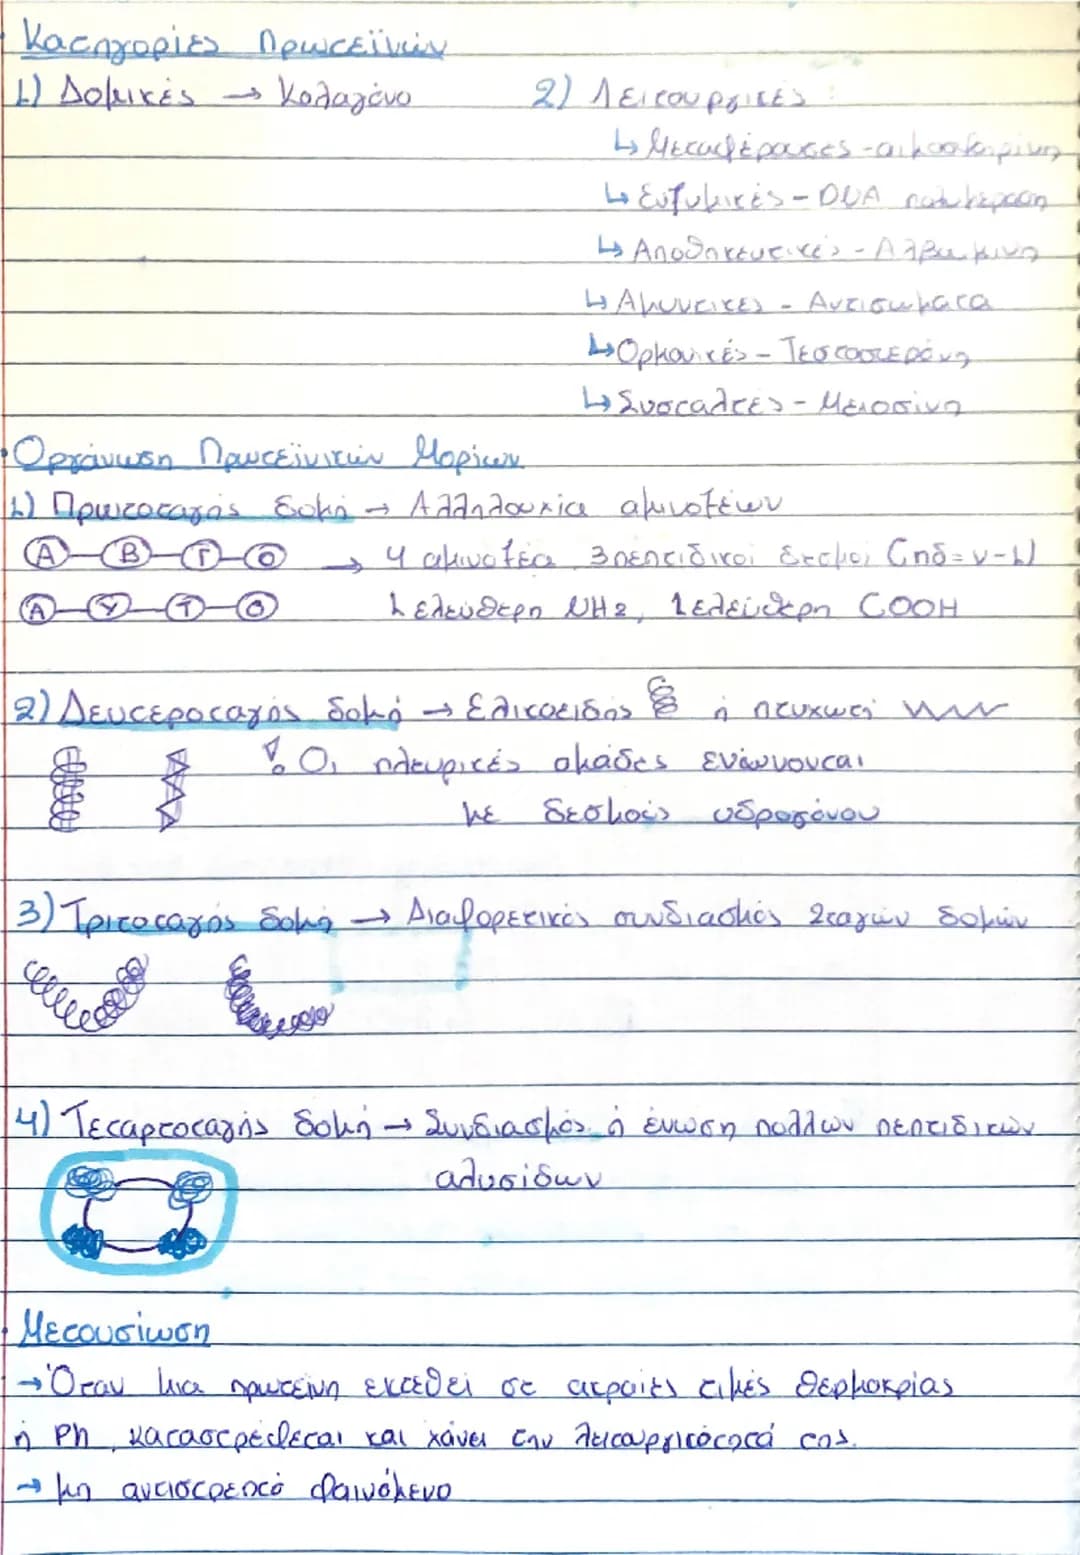 Κατηγορίες Πρωτεϊνών
1) Δομικές → Κολαγόνο
2) Λειτουργικές :
↳ Μεταφέρουσες - αιμοσφαιρίνη
↳ Ενζυμικές - DNA πολυμεράση
↳ Αποθηκευτικές - Αλβουμίνη
↳ Αμυντικές - Αντισώματα
↳ Ορμονικές - Τεστοστερόνη
↳ Συσταλτές - Μειοσίνη
Οργάνωση Πρωτεϊνικών Μορίων
1) Πρωτοταγής δομή → Αλληλουχία αμινοξέων
Α Β Γ Ο → 4 αμινοξέα, 3 πεπτιδικοί δεσμοί (πδ = ν-1)
Α Υ Τ Ο 1 ελεύθερη NH2, 1 ελεύθερη COOH
2) Δευτεροταγής δομή → Ελικοειδής ή πτυχωτή
! Οι πλευρικές ομάδες ενώνονται
με δεσμούς υδρογόνου
3) Τριτοταγής δομή → Διαφορετικός συνδιασμός 2ταγών δομών
4) Τεταρτοταγής δομή → Συνδιασμός ή ένωση πολλών πεπτιδικών
αλυσίδων
Μετουσίωση
→ Όταν μια πρωτεΐνη εκτεθεί σε ακραίες τιμές θερμοκρίας
ή Ph, καταστρέφεται και χάνει την λειτουργικότητά της.
→ μη αντιστρεπτό φαινόμενο